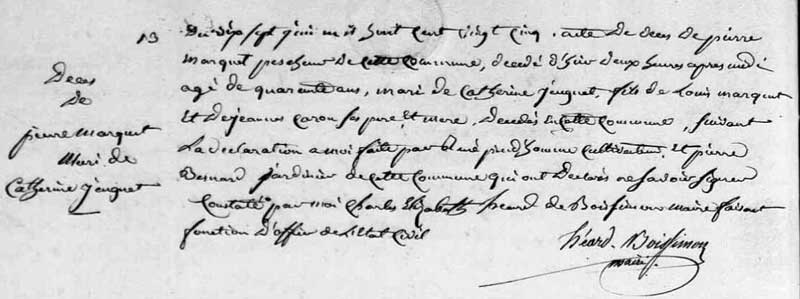 13
Deces
De
pierre marquet
Mari de
Catherine Jeuguet
Du dix sept Juin mil huit cent vingt cinq, acte De deces De pierre
Marquet pescheur De cette Commune, decedé D'hier deux heures apres midi
agé de quarente ans, mari de Catherine Jeuguet, fils de Louis marquet
Et De jeanne Caron ses pere et mere, Decedés en cette Commune, suivant
La declaration a moi faite par René prud'homme Cultivateur, et pierre
Besnard Jardinier de cette Commune qui ont declarés ne savoir signer
Constaté par moi Charles Elizabeth heard de Boissimon maire faisant
fonction D'officier de L'Etat Civil
héard. Boissimon
maire